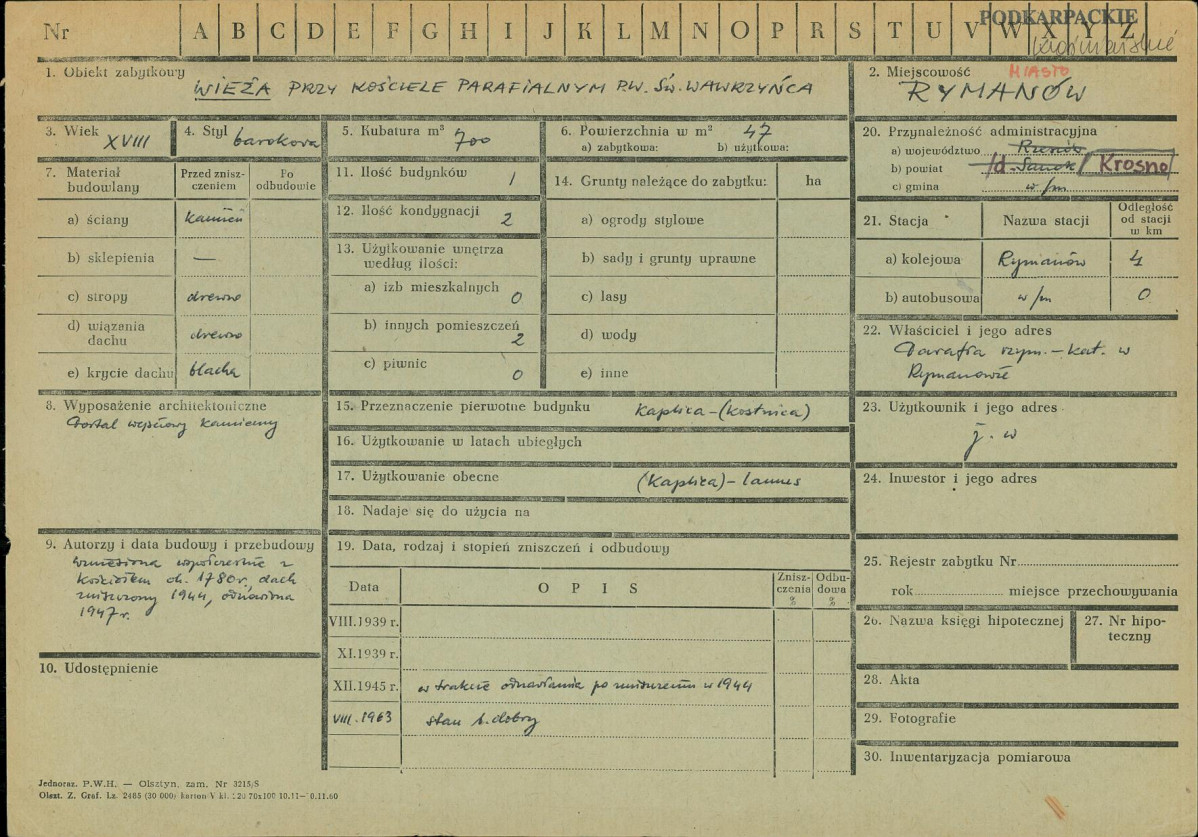 Nr A B C D E F G H I J K L M N O P R S T U V W X Y Z
PODKARPACKIE
1. Obiekt zabytkowy
WIEŻA PRZY KOŚCIELE PARAFIALNYM P.W. ŚW. WAWRZYŃCA
2. Miejscowość
MIASTO
RYMANÓW
3. Wiek XVIII
4. Styl barokowa
5. Kubatura m³ 700
6. Powierzchnia w m² 47
a) zabytkowa: b) użytkowa:
20. Przynależność administracyjna
a) województwo Rzeszów
b) powiat /d. Sanok/ Krosno
c) gmina w/m
7. Materiał budowlany
Przed zniszczeniem
Po odbudowie
a) ściany kamień
b) sklepienia —
c) stropy drewno
d) wiązania dachu drewno
e) krycie dachu blacha
11. Ilość budynków 1
12. Ilość kondygnacji 2
13. Użytkowanie wnętrza
według ilości:
a) izb mieszkalnych 0
b) innych pomieszczeń 2
c) piwnic 0
14. Grunty należące do zabytku: ha
a) ogrody stylowe
b) sady i grunty uprawne
c) lasy
d) wody
e) inne
21. Stacja
Nazwa stacji
Odległość
od stacji
w km
a) kolejowa Rymanów 4
b) autobusowa w/m 0
22. Właściciel i jego adres
Parafia rzym.-kat. w
Rymanowie
8. Wyposażenie architektoniczne
Portal wejściowy kamienny
15. Przeznaczenie pierwotne budynku kaplica-(kostnica)
16. Użytkowanie w latach ubiegłych
17. Użytkowanie obecne (kaplica)-lamus
18. Nadaje się do użycia na
23. Użytkownik i jego adres
j. w
24. Inwestor i jego adres
9. Autorzy i data budowy i przebudowy
Wzniesiona współcześnie z
kościołem ok. 1780r, dach
zniszczony 1944, odnowiona
1947r.
10. Udostępnienie
19. Data, rodzaj i stopień zniszczeń i odbudowy
Data
OPIS
Zniszczenia
%
Odbudowa
%
VIII.1939 r.
XI.1939 r.
XII.1945 r. w trakcie odnawiania po zniszczeniu w 1944
VIII.1963 stan b. dobry
25. Rejestr zabytku Nr
rok miejsce przechowywania
26. Nazwa księgi hipotecznej
27. Nr hipoteczny
28. Akta
29. Fotografie
30. Inwentaryzacja pomiarowa
Jednoraz. P.W.H. — Olsztyn, zam. Nr 3215/S
Olszt. Z. Graf. Lz. 2465 (30 000) karton V kl. 220 70x100 10.11—10.11.60